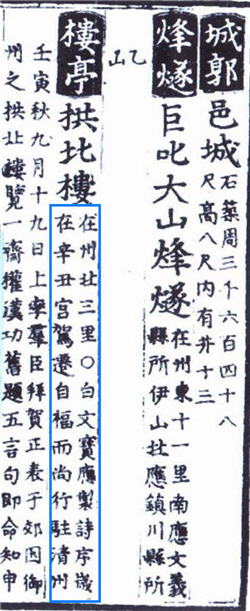 城郭
邑城
石築周三千六百四十八
尺高八尺內有井十三
烽燧
巨叱大山烽燧
在州東十一里南應文義
縣所伊山北應鎮川縣所
乙
山
樓亭
拱北樓
在州北三里○白文寶應製詩序歲
在辛丑宮駕遷自福而尚行駐清州
壬寅秋九月十九日上率羣臣拜賀正表于郊因御
州之拱北樓覽一齋權漢功舊題五言句即命知申